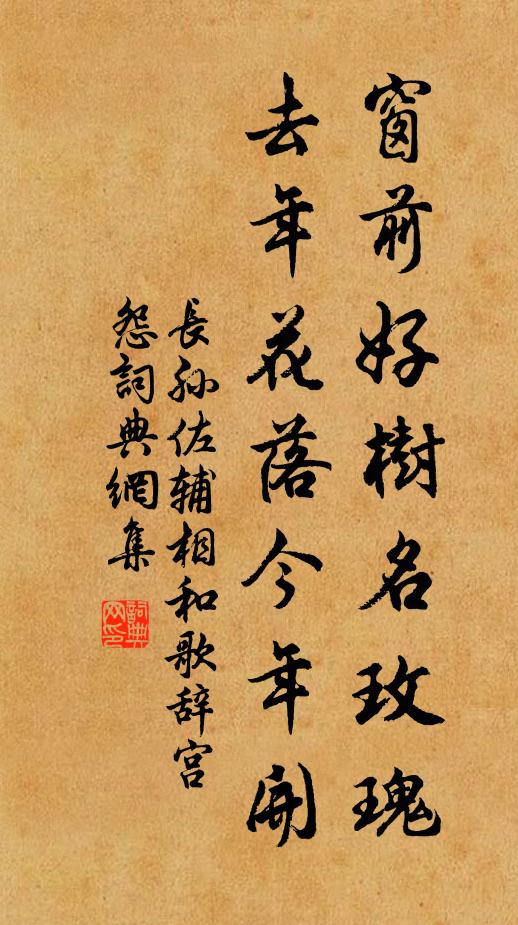 窗前好樹名玫瑰
去年花落今年開
長孙佐辅相和歌辞宫
怨詞典網集
詞典网印